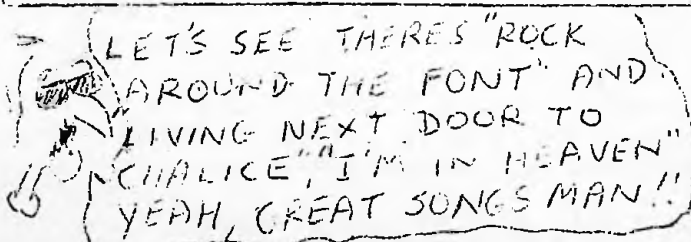 LET'S SEE THERES "ROCK
AROUND THE FONT" AND
LIVING NEXT DOOR TO
CHALICE", "I'M IN HEAVEN"
YEAH, GREAT SONGS MAN!!